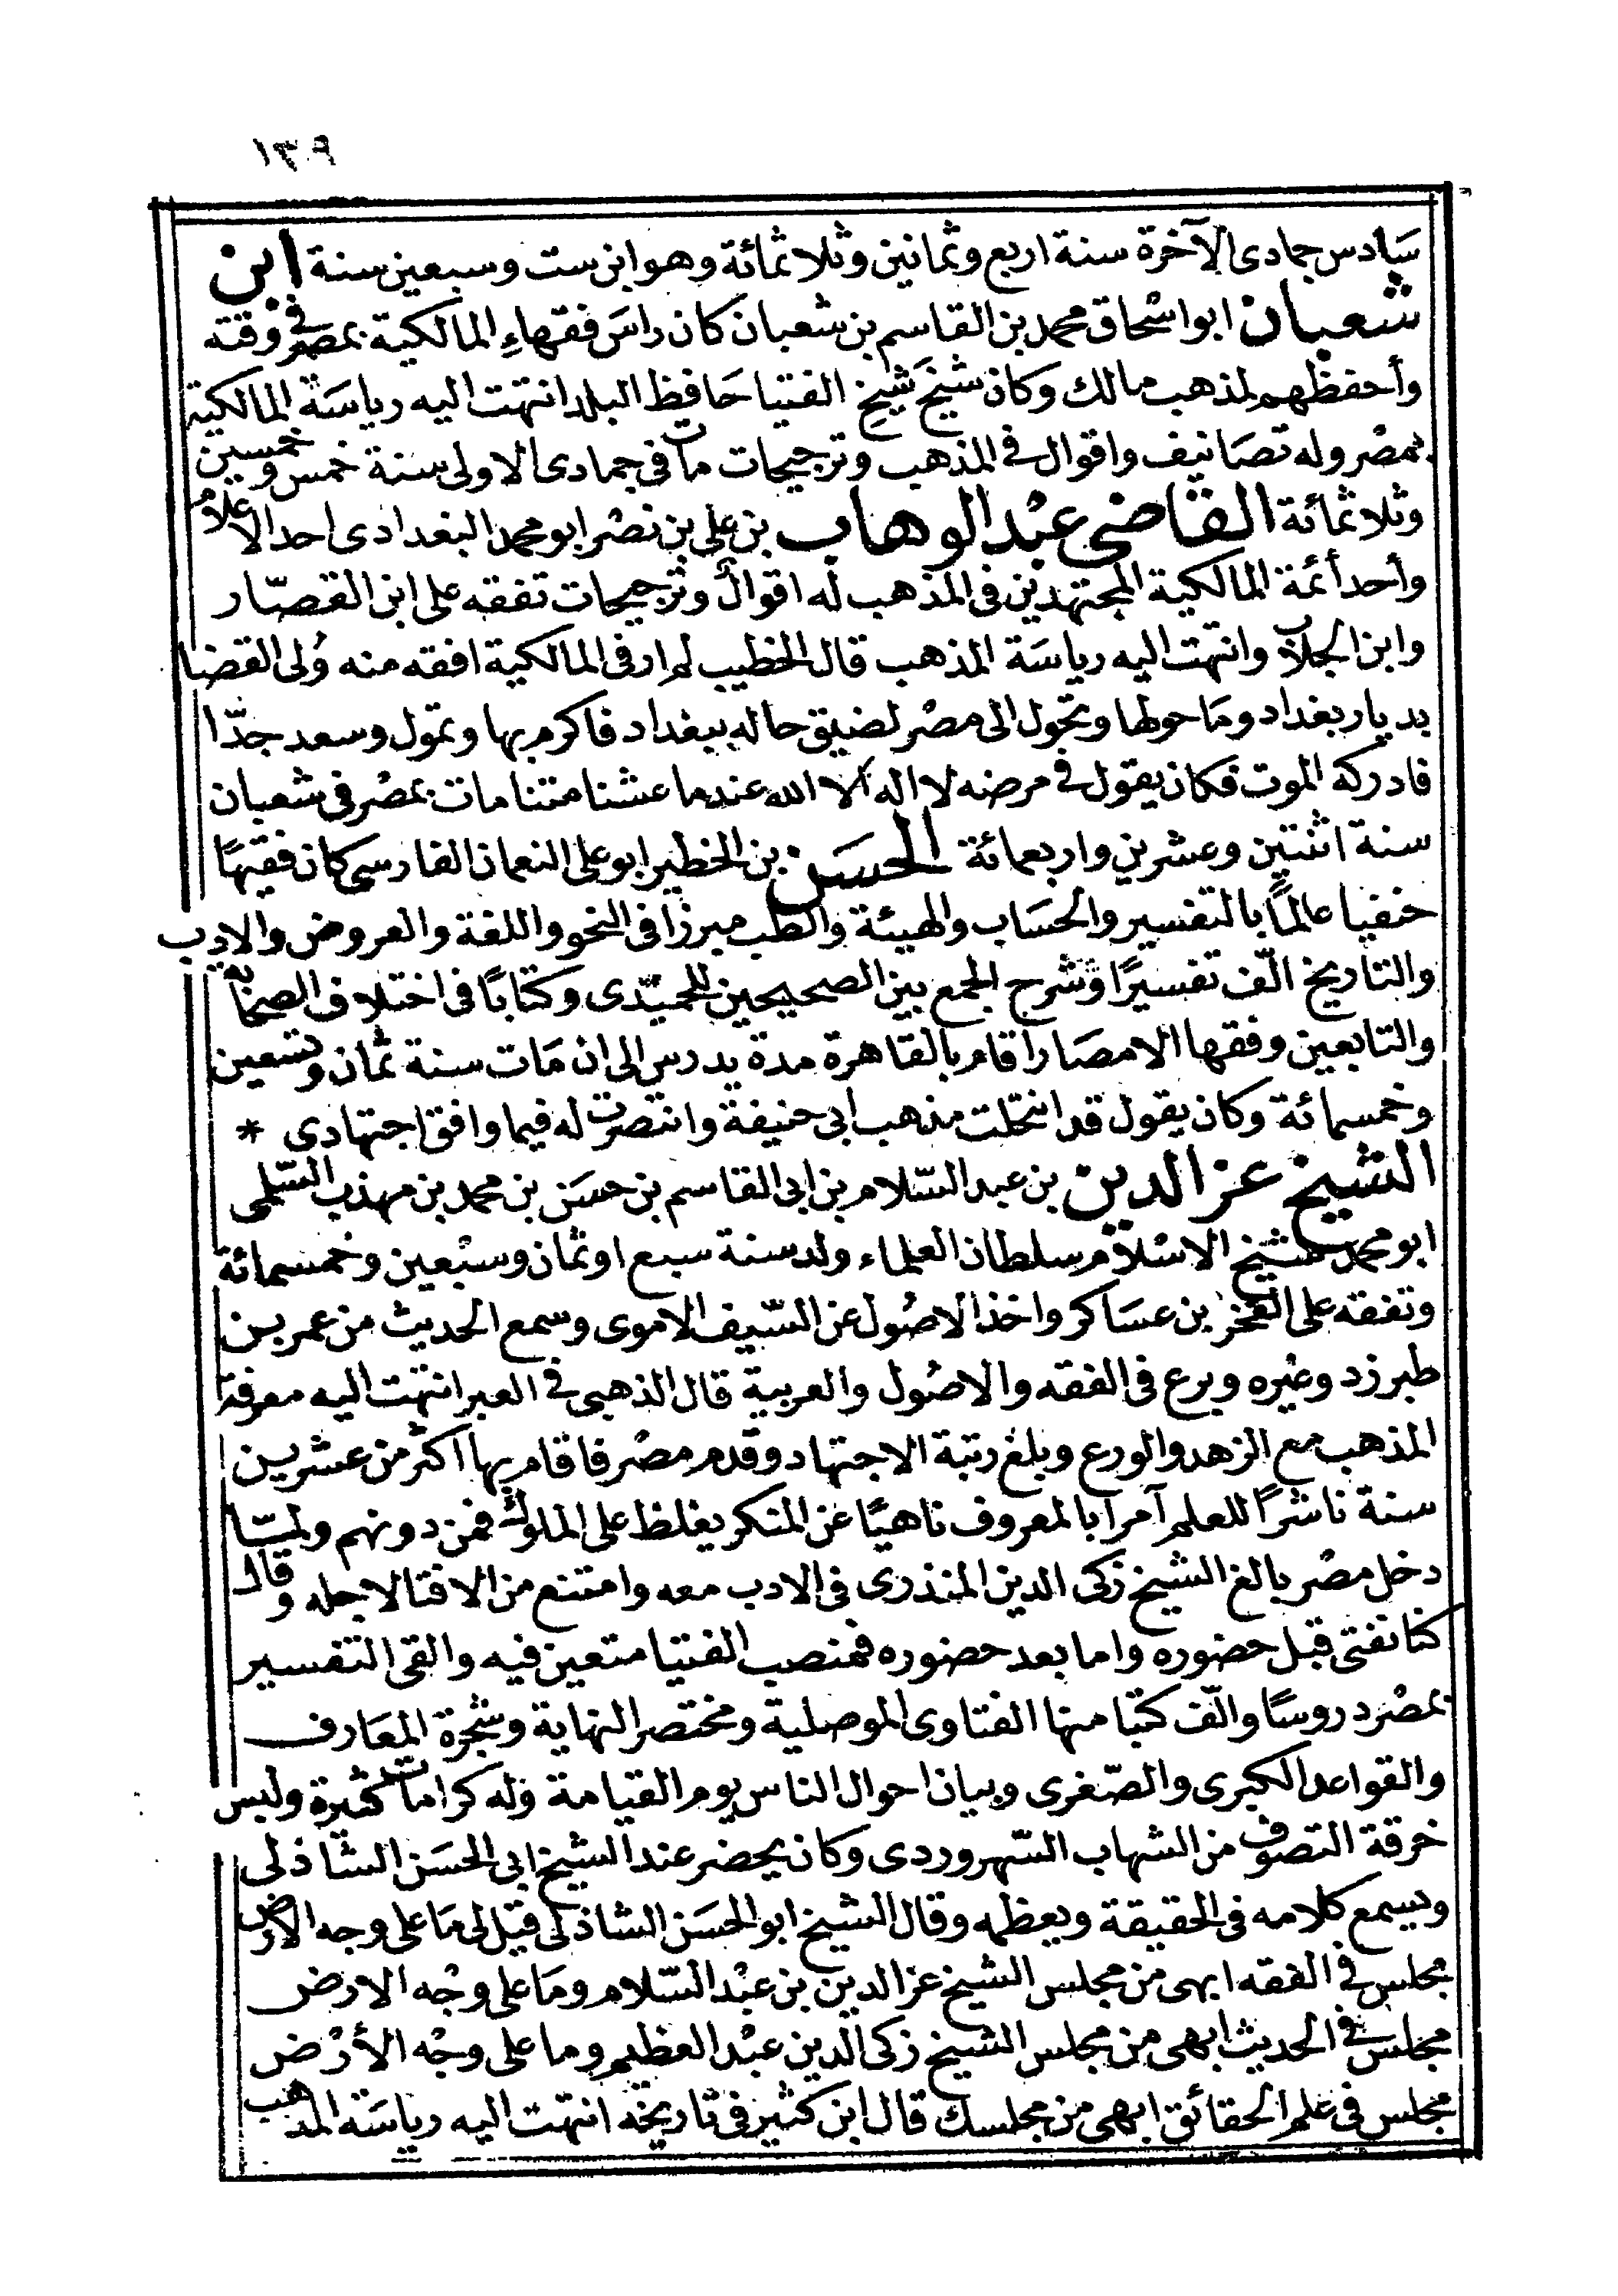 ١٣٩
سَادس جمادى الآخرة سنة اربع وثمانين وثلاثمائة وهو ابن ست وسبعين سنة ابن
شعبان ابو اسْحاق محمد بن القاسم بن شعبان كان راسَ فقهاءِ المالكية بمصر فى وقته
وأحفظهم لمذهب مالك وكان شيخَ شيخ الفتيا حَافظ البلد انتهت اليه رياسَة المالكية
بمصْر وله تصَانيف واقوال فى المذهب وترجيحات مات فى جمادى الاولى سنة خمس وخمسين
وثلاثمائة القاضى عبْد الوهاب بن على بن نصْر ابو محمد البغدادى احد الاعلام
وأحد أئمة المالكية المجتهدين فى المذهب له اقوال وترجيحات تفقه على ابن القصّار
وابن الجلاب وانتهت اليه رياسَة المذهب قال الخطيب لم ار فى المالكية افقه منه وُلى القضا
بديار بغداد ومَا حولها وتحول الى مصْر لضيق حاله ببغداد فاكرم بها وتمول وسعد جدّا
فادركه الموت فكان يقول فى مرضه لا اله الا الله عندما عشنا متنا مات بمصْر فى شعبان
سنة اثنتين وعشرين واربعمائة الحسَن بن الخطير ابو على النعمان الفارسى كان فقيهًا
حنفيا عالمًا بالتفسير والحسَاب والهيئة والطب مبرزا فى النحو واللغة والعروض والادب
والتاريخ الّف تفسيرًا وشرح الجمع بين الصحيحين للحميّدى وكتابًا فى اختلاف الصحابة
والتابعين وفقها الامصَار اقام بالقاهرة مدة يدرس الى ان مَات سنة ثمان وتسعين
وخمسمائة وكان يقول قد انتحلت مذهب ابى حنيفة وانتصرت له فيما وافق اجتهادى *
الشيخ عز الدين بن عبد السّلام بن ابى القاسم بن حسَن بن محمد بن مهذب السّلمى
ابو محمد شيخ الاسْلام سلطان العلماء ولد سنة سبع او ثمان وسبْعين وخمسمائة
وتفقه على الفخر بن عسَاكر واخذ الاصُول عن السّيف الاموى وسمع الحديث من عمر بن
طبرزد وغيره وبرع فى الفقه والاصُول والعربية قال الذهبى فى العبر انتهت اليه معرفة
المذهب مع الزهد والورع وبلغ رتبة الاجتهاد وقدم مصْر فاقام بها اكثر من عشرين
سنة ناشرًا للعلم آمرا بالمعروف ناهيًا عن المنكر يغلظ على الملوك فمن دونهم ولمّا
دخل مصْر بالغ الشيخ زكى الدين المنذرى فى الادب معه وامتنع من الافتا لاجله وقال
كنا نفتى قبل حضوره واما بعد حضوره فمنصب الفتيا متعين فيه والقى التفسير
بمصْر دروسًا والّف كتبا منها الفتاوى الموصلية ومختصر النهاية وشجرة المعَارف
والقواعد الكبرى والصّغرى وبيان احوال الناس يوم القيامة وله كرامات كثيرة ولبس
خرقة التصوف من الشهاب السّهروردى وكان يحضر عند الشيخ ابى الحسَن الشاذلى
ويسمع كلامه فى الحقيقة ويعظمه وقال الشيخ ابو الحسَن الشاذلى قيل لى مَا على وجه الارض
مجلس فى الفقه ابهى من مجلس الشيخ عز الدين بن عبْد السّلام ومَا على وجْه الارض
مجلس فى الحديث ابهى من مجلس الشيخ زكى الدين عبْد العظيم وما على وجْه الأرْض
مجلس فى علم الحقائق ابهى من مجلسك قال ابن كثير فى تاريخه انتهت اليه رياسَة المذهب